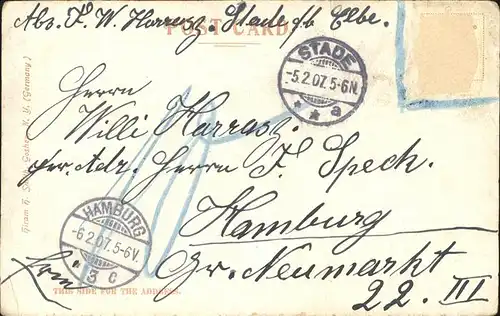 Abs. F. W. Harrasz. Stade a/b Elbe.
POST CARD.
STADE
-5.2.07.5-6N.
* * a
Herrn
Willi Harrasz.
per. Adr. Herrn F. Speck.
Hamburg
Gr. Neumarkt
22. III
HAMBURG
-6.2.07.5-6V.
* 3 c
THIS SIDE FOR THE ADDRESS.
Hiram H. Goshen, N. Y. (Germany)